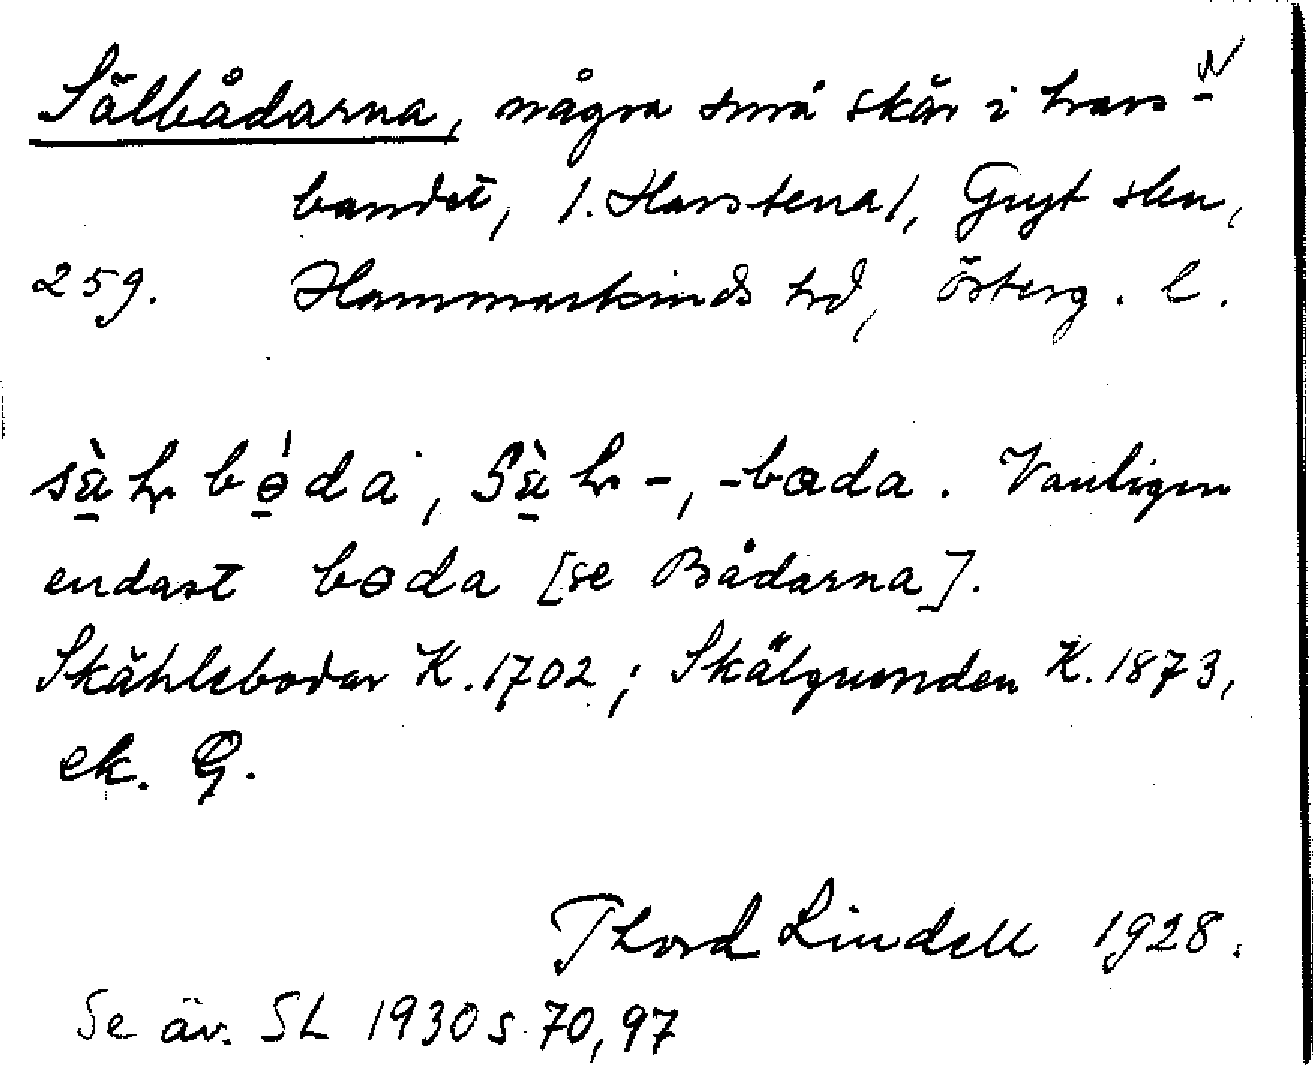 Sälbådarna, några små skär i havs-
bandet, /. Harstena/, Gryt skn,
259. Hammarkinds hd, Österg. l.
endast [se Bådarna].
Skählebodar K. 1702; Skälgrunden K. 1873,
ek. G.
Thord Lindell 1928.
Se äv. SL 1930 s. 70, 97